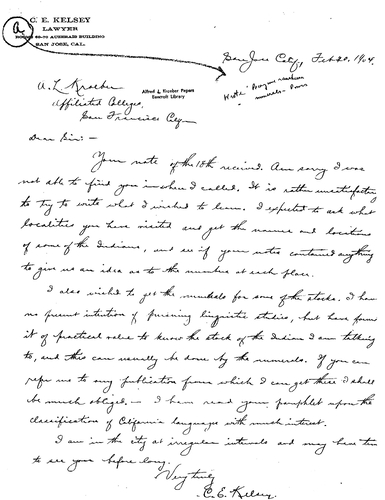 C. E. KELSEY
LAWYER
ROOMS 68-70 AUZERAIS BUILDING
SAN JOSE, CAL.
San Jose City, Feb 20, 1904.
A. L. Kroeber
Affiliated Colleges
San Francisco Cal
Alfred L. Kroeber Papers
Bancroft Library
Dear Sir:-
Your note of the 18th received. Am sorry I was
not able to find you in when I called. It is rather unsatisfactory
to try to write what I wished to learn. I expected to ask what
localities you have visited and get the names and locations
of some of the Indians, and see if your notes contained anything
to give us an idea as to the number at each place.
I also wished to get the numerals for some of the stocks. I have
no present intention of pursuing linguistic studies, but have found
it of practical value to know the stock of the Indian I am talking
to, and this can usually be done by the numerals. If you can
refer me to any publication from which I can get these I shall
be much obliged. - I have read your pamphlet upon the
classification of California languages with much interest.
I am in the city at irregular intervals and may have time
to see you before long.
Very truly
C. E. Kelsey